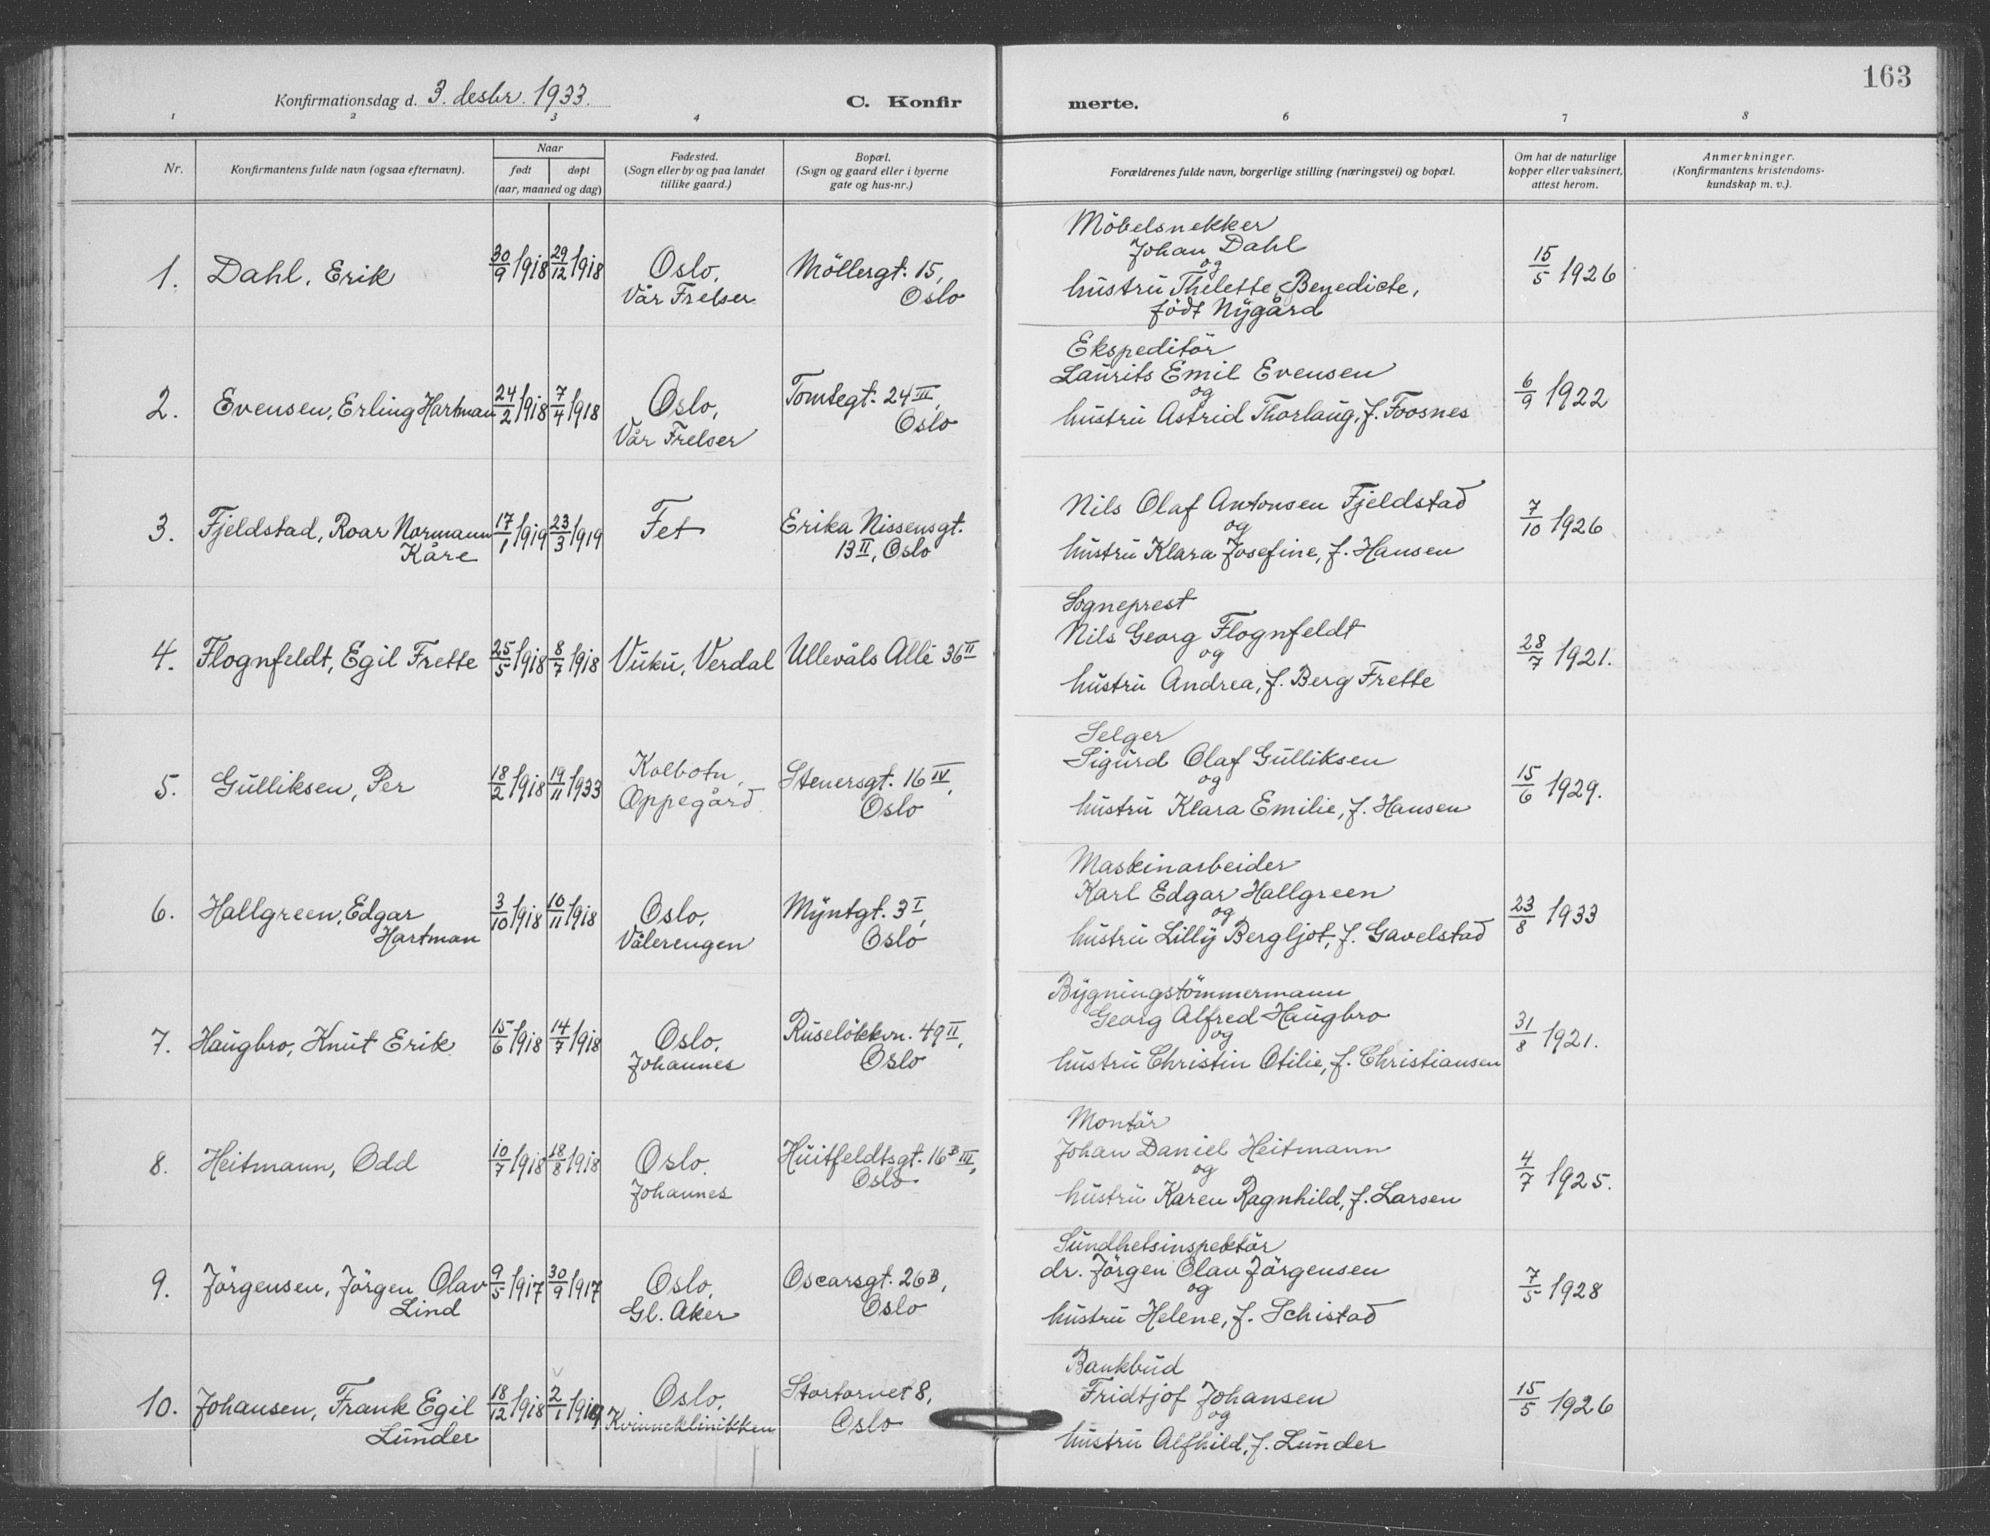 163
Konfirmationsdag d. 3. desbr. 1933.
C. Konfir
merte.
1 2 3 4 5 6 7 8
Nr.
Konfirmantens fulde navn (ogsaa efternavn).
Naar
født
døpt
(aar, maaned og dag)
Fødested.
(Sogn eller by og paa landet
tillike gaard.)
Bopæl.
(Sogn og gaard eller i byerne
gate og hus-nr.)
Forældrenes fulde navn, borgerlige stilling (næringsvei) og bopæl.
Om hat de naturlige
kopper eller vaksinert,
attest herom.
Anmerkninger.
(Konfirmantens kristendoms-
kundskap m. v.).
1. Dahl, Erik 30/9 1918 29/12 1918
Oslo,
Vår Frelser
Möllergt. 15,
Oslo
Möbelsnekker
Johan Dahl
og
hustru Thilette Benedicte,
födt Nygård
15/5 1926
2. Evensen, Erling Hartman 24/2 1918 7/4 1918
Oslo,
Vår Frelser
Tomtegt. 24 III,
Oslo
Ekspeditör
Laurits Emil Evensen
og
hustru Astrid Thorlaug, f. Foosnes
6/9 1922
3. Fjeldstad, Roar Normann
Kåre
17/1 1919 23/3 1919
Fet
Erika Nissensgt.
13 II, Oslo
Nils Olaf Antonsen Fjeldstad
og
hustru Klara Josefine, f. Hansen
7/10 1926
4. Flognfeldt, Egil Frette 25/5 1918 8/7 1918
Vuku, Verdal
Ullevåls Allé 36 II
Sogneprest
Nils Georg Flognfeldt
og
hustru Andrea, f. Berg Frette
28/7 1921.
5. Gulliksen, Per 18/2 1918 19/11 1933
Kolbotn,
Oppegård
Stenersgt. 16 IV,
Oslo
Selger
Sigurd Olaf Gulliksen
og
hustru Klara Emilie, f. Hansen
15/6 1929.
6. Hallgreen, Edgar
Hartman
3/10 1918 10/11 1918
Oslo,
Vålerengen
Myntgt. 3 I,
Oslo
Maskinarbeider
Karl Edgar Hallgreen
og
hustru Lilly Bergljot, f. Gavelstad
23/8 1933
7. Haugbro, Knut Erik 15/6 1918 14/7 1918
Oslo,
Johannes
Ruselökkvn. 49 II,
Oslo
Bygningstömmermann
Georg Alfred Haugbro
og
hustru Christin Otilie, f. Christiansen
31/8 1921.
8. Heitmann, Odd 10/7 1918 18/8 1918
Oslo.
Johannes
Huitfeldtsgt. 16 B III,
Oslo
Montör
Johan Daniel Heitmann
og
hustru Karen Ragnhild, f. Larsen
4/7 1925.
9. Jörgensen, Jörgen Olav
Lind
9/5 1917 30/9 1917
Oslo,
Gl. Aker
Oscarsgt. 26 B,
Oslo
Sundhetsinspektör
dr. Jörgen Olav Jörgensen
og
hustru Helene, f. Schistad
7/5 1928
10. Johansen, Frank Egil
Lunder
18/12 1918 2/1 1919
Oslo,
Kvinneklinikken
Stortorvet 8,
Oslo
Bankbud
Fridtjof Johansen
og
hustru Alfhild, f. Lunder
15/5 1926